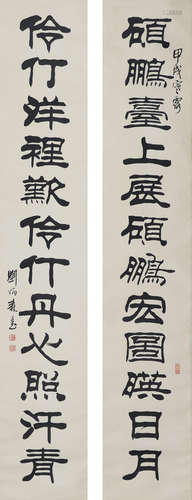 甲戌寒露
碩鵬臺上展碩鵬宏圖暎日月
伶仃洋裡歎伶仃丹心照汗青
劉炳森書